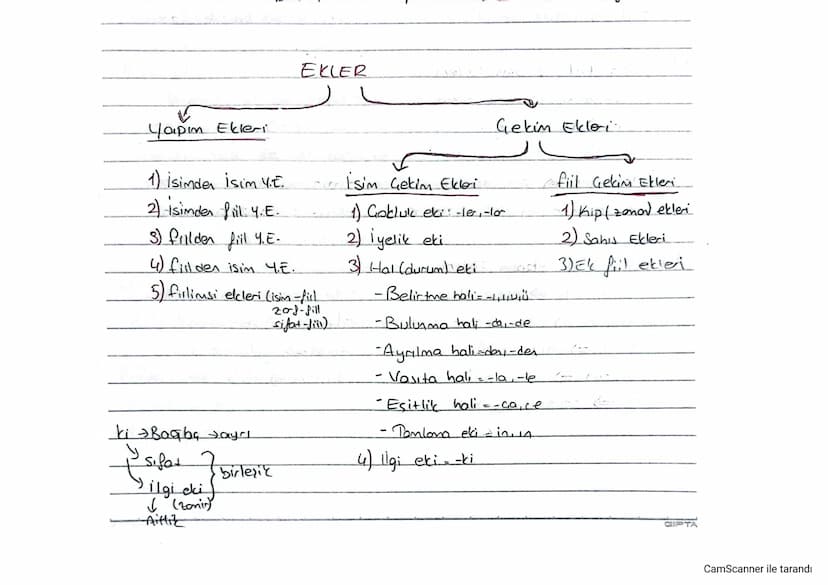 EKLER
Yapım Ekleri
Çekim Ekleri
1) İsimden İsim Y.E.
2) İsimden fiil Y.E.
3) fiilden fiil Y.E.
4) fiilden isim Y.E.
5) fiilimsi ekleri (isim-fiil
zarf-fiil
sıfat-fiil)
İsim Çekim Ekleri
1) Çokluk eki: -ler, -lar
2) İyelik eki
3) Hal (durum) eki
- Belirtme hali = -ı,i,u,ü
- Bulunma hali -da, -de
- Ayrılma hali = dan, -den
- Vasıta hali = -la, -le
- Eşitlik hali = -ca, ce
- Tamlama eki = in, ın
4) İlgi eki = -ki
fiil Çekim Ekleri
1) Kip (zaman) ekleri
2) Şahıs Ekleri
3) Ek fiil ekleri
ki → Bağbaç → ayrı
Sıfat
İlgi eki
(zamir)
birleşik
Aitlik
GIPTA
CamScanner ile tarandı